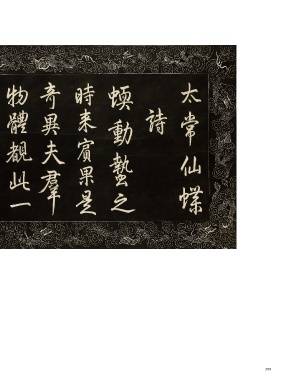 太常仙蝶
詩
蝡動蟄之
時来賓果是
奇異夫羣
物體覩此一